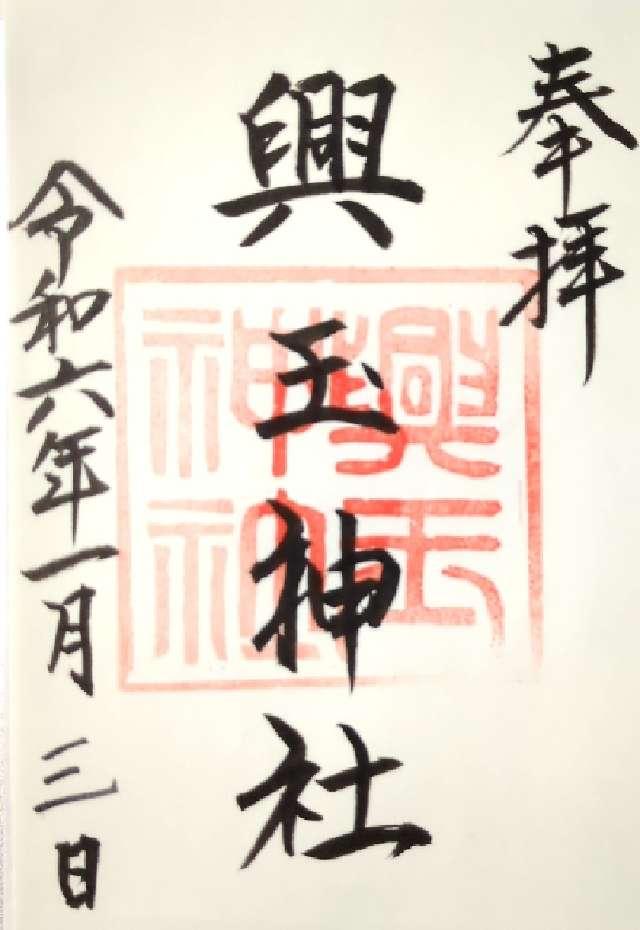 奉拝
興玉神社
興玉
神社
令和六年一月三日